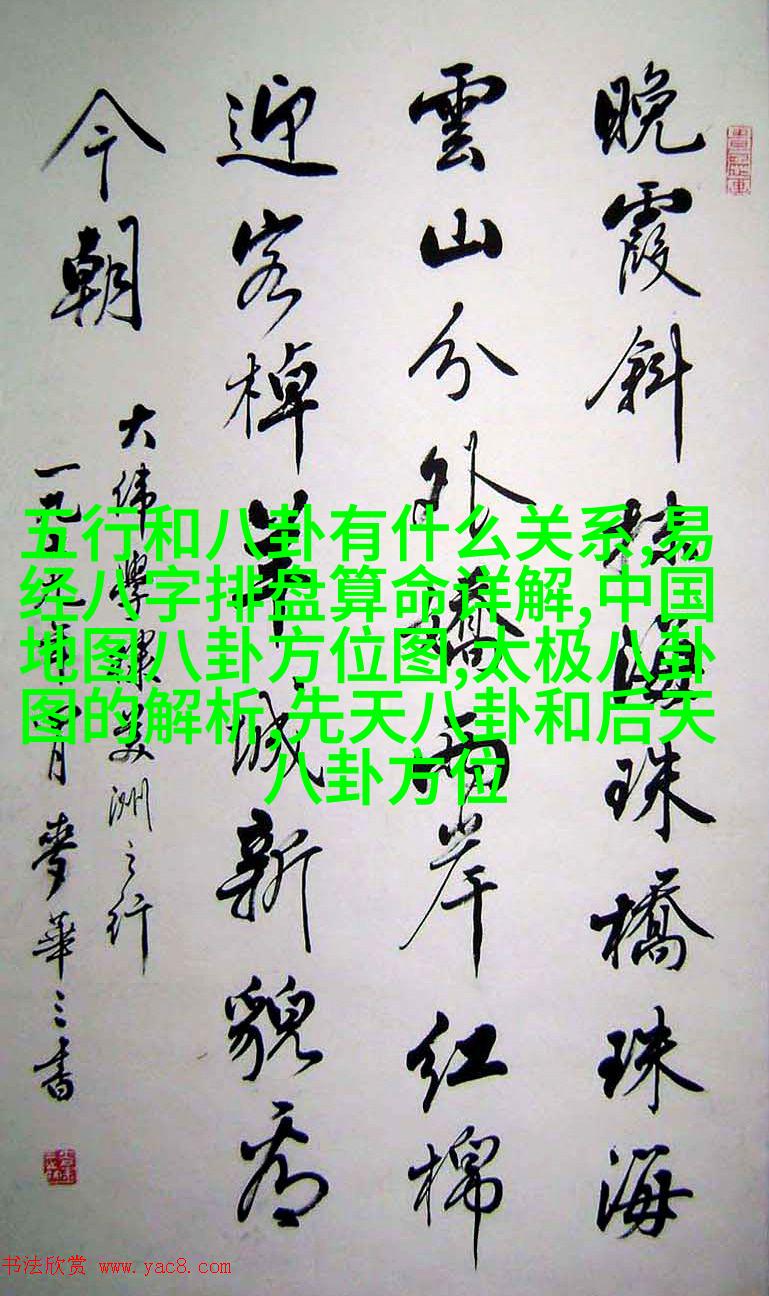 晚霞斜抹海珠橋珠海
雲山分外嬌兩岸紅棉
迎客棹羊城新貌看
今朝
大緯學棣美洲之行
一九 九年 月麥華三書
五行和八卦有什么关系,易
经八字排盘算命详解,中国
地图八卦方位图,太极八卦
图的解析,先天八卦和后天
八卦方位
书法欣赏 www.yac8.com